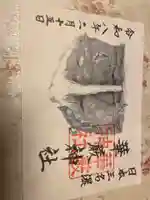 日本三名瀑
華厳神社
令和八年二月十五日